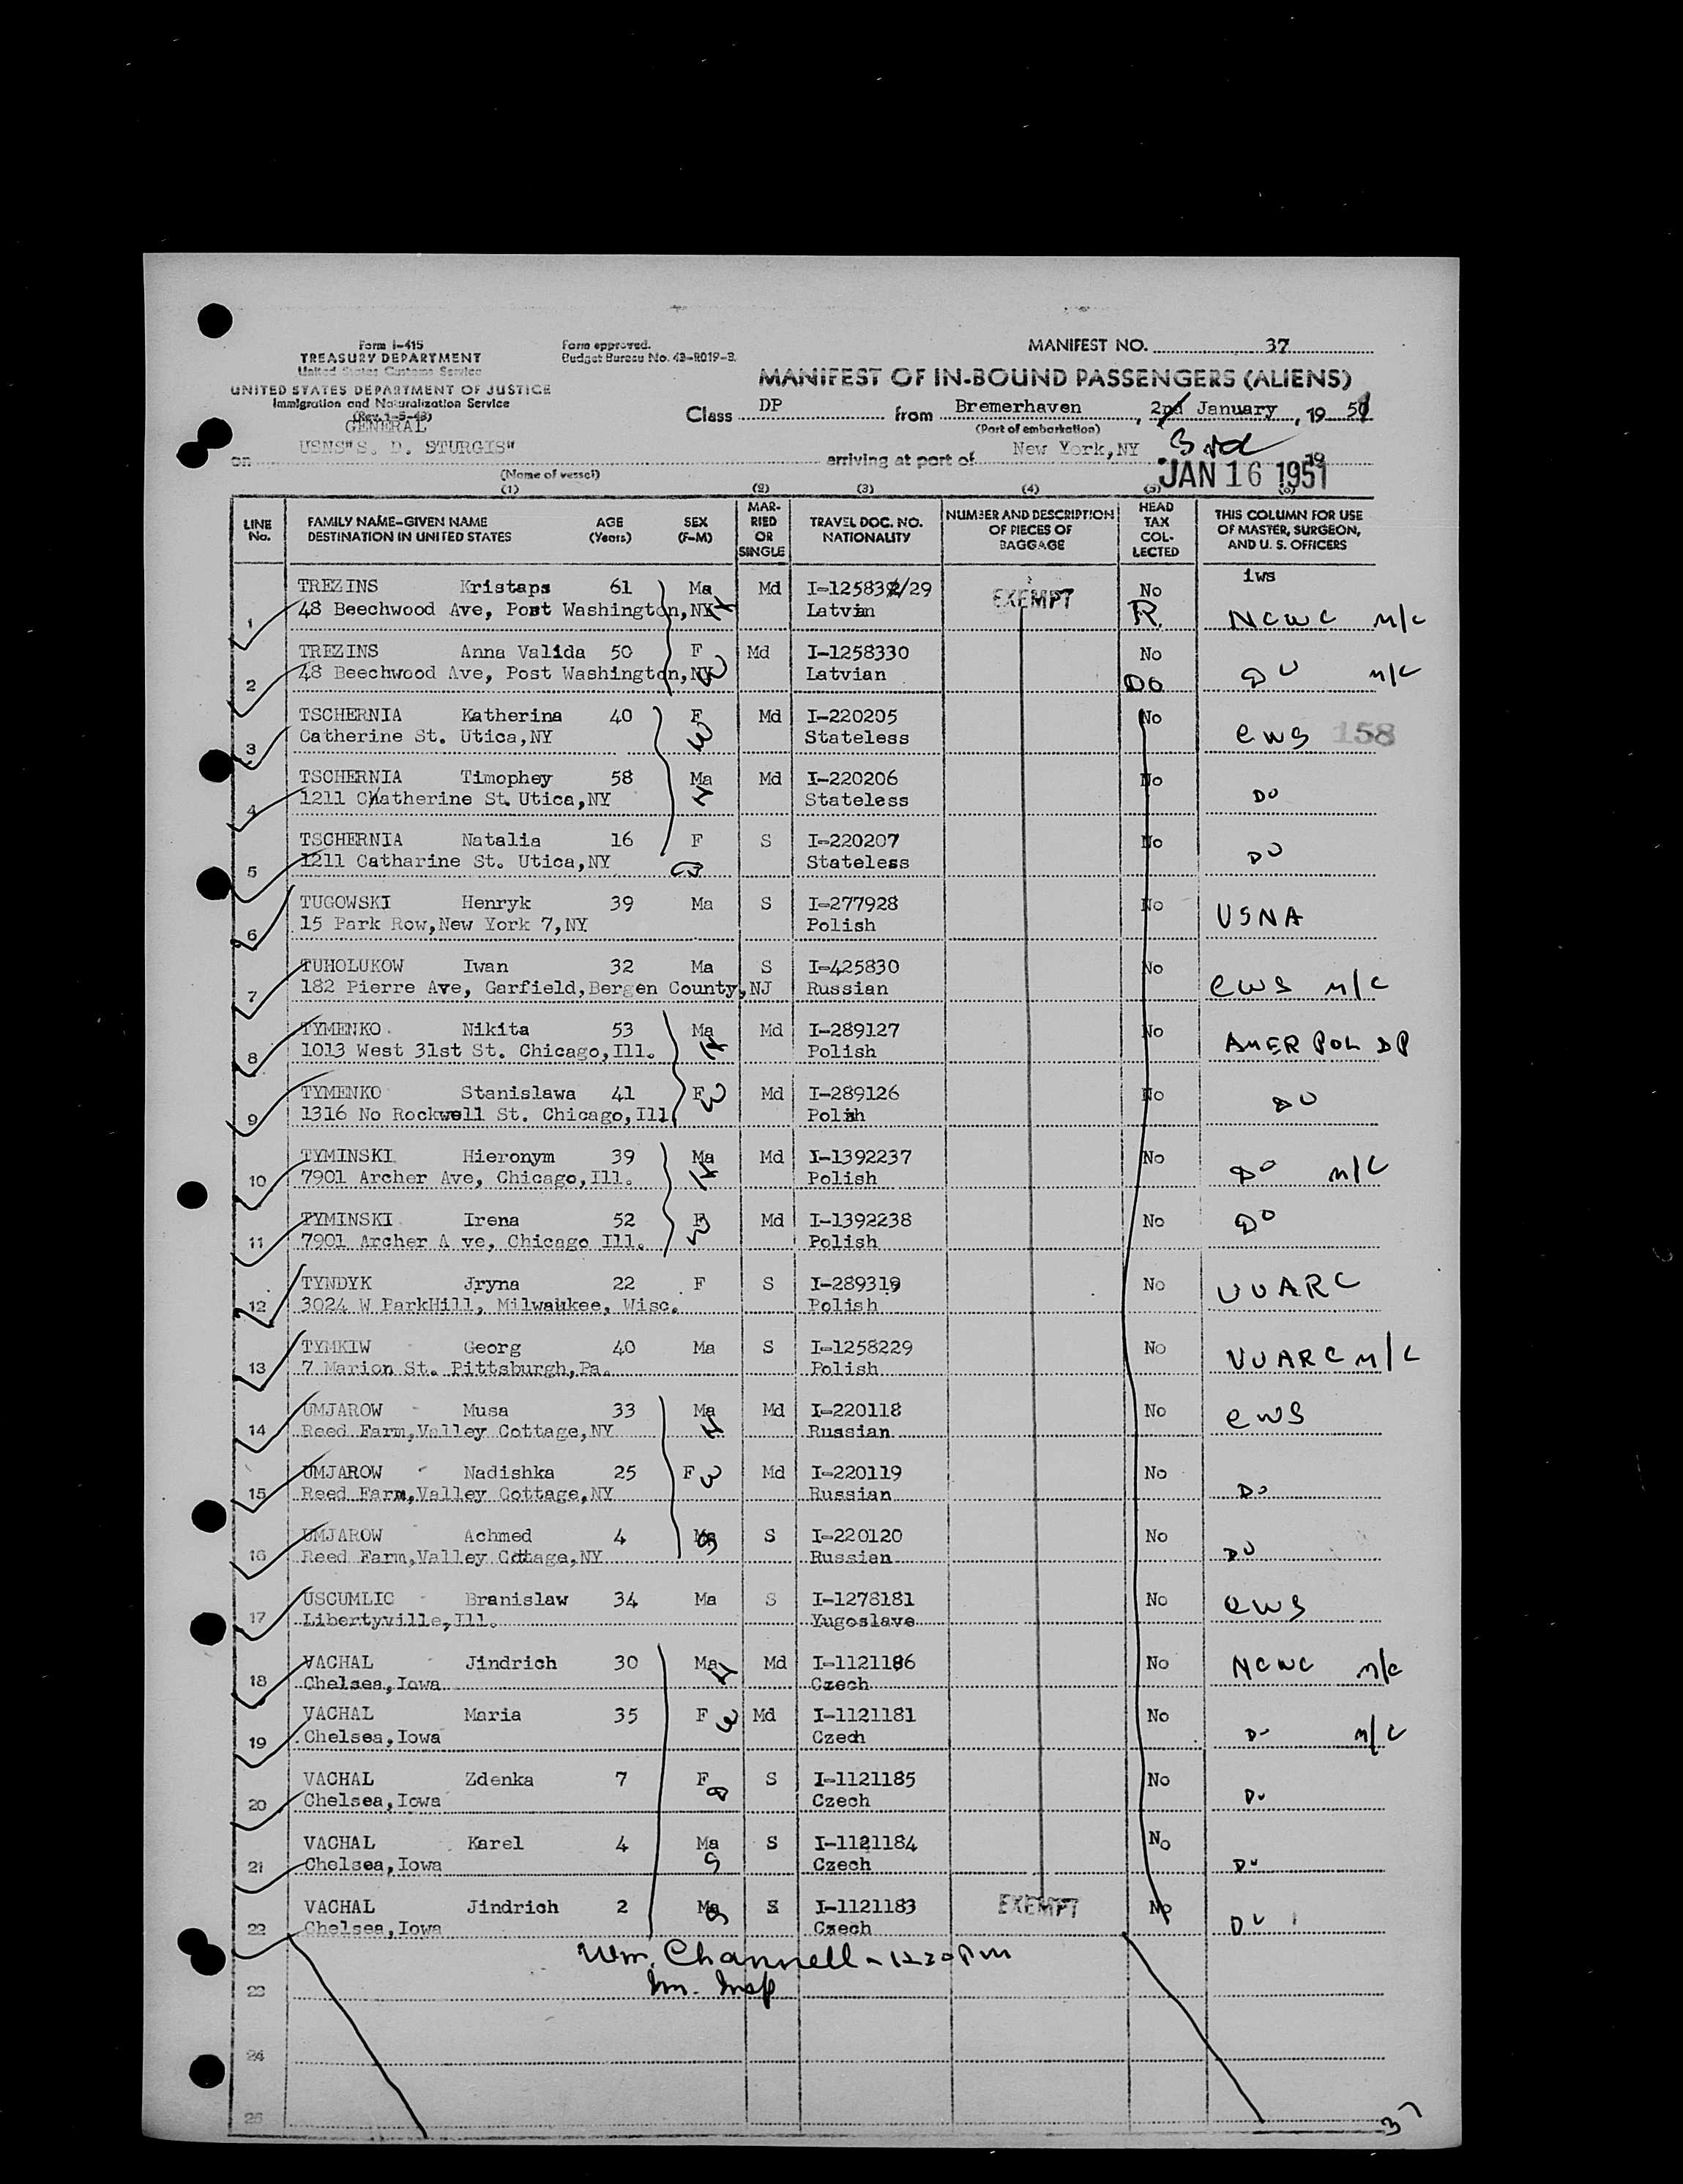 Form I-415
TREASURY DEPARTMENT
United States Customs Service
UNITED STATES DEPARTMENT OF JUSTICE
Immigration and Naturalization Service
(Rev. 1-5-48)
Form approved.
Budget Bureau No. 43-R019-3.
MANIFEST NO. 37
MANIFEST OF IN-BOUND PASSENGERS (ALIENS)
Class DP from Bremerhaven, 2nd January, 1951
(Port of embarkation)
3rd
GENERAL
on USNS"S. D. STURGIS" arriving at port of New York,NY JAN 16 1951 19
(Name of vessel)
(1) (2) (3) (4) (5) (6)
LINE No. FAMILY NAME-GIVEN NAME DESTINATION IN UNITED STATES AGE (Years) SEX (F-M) MARRIED OR SINGLE TRAVEL DOC. NO. NATIONALITY NUMBER AND DESCRIPTION OF PIECES OF BAGGAGE HEAD TAX COLLECTED THIS COLUMN FOR USE OF MASTER, SURGEON, AND U. S. OFFICERS
iws
1 TREZINS Kristaps 61 Ma Md I-1258329/29 EXEMPT No
48 Beechwood Ave, Post Washington,NY H Latvian R. NCWC M/C
2 TREZINS Anna Valida 50 F Md I-1258330 No
48 Beechwood Ave, Post Washington,NY W Latvian DO DO M/C
3 TSCHERNIA Katherina 40 F Md I-220205 No
Catherine St. Utica,NY W Stateless CWS 158
4 TSCHERNIA Timophey 58 Ma Md I-220206 No
1211 Chatherine St. Utica,NY H Stateless DO
5 TSCHERNIA Natalia 16 F S I-220207 No
1211 Catharine St. Utica,NY D Stateless DO
6 TUGOWSKI Henryk 39 Ma S I-277928 No
15 Park Row,New York 7,NY Polish USNA
7 TUHOLUKOW Iwan 32 Ma S I-425830 No
182 Pierre Ave, Garfield,Bergen County,NJ Russian CWS M/C
8 TYMENKO Nikita 53 Ma Md I-289127 No
1013 West 31st St. Chicago,Ill. H Polish AMER POL DP
9 TYMENKO Stanislawa 41 F W Md I-289126 No
1316 No Rockwell St. Chicago,Ill. Polish DO
10 TYMINSKI Hieronym 39 Ma Md I-1392237 No
7901 Archer Ave, Chicago,Ill. H Polish DO M/C
11 TYMINSKI Irena 52 F Md I-1392238 No
7901 Archer A ve, Chicago Ill. W Polish DO
12 TYNDYK Jryna 22 F S I-289319 No
3024 W ParkHill, Milwaukee, Wisc. Polish UUARC
13 TYMKIW Georg 40 Ma S I-1258229 No
7 Marion St. Pittsburgh,Pa. Polish UUARC M/C
14 UMJAROW Musa 33 Ma Md I-220118 No
Reed Farm,Valley Cottage,NY H Russian CWS
15 UMJAROW Nadishka 25 F W Md I-220119 No
Reed Farm,Valley Cottage,NY Russian DO
16 UMJAROW Achmed 4 Ma S I-220120 No
Reed Farm,Valley Cottage,NY S Russian DO
17 USCUMLIC Branislaw 34 Ma S I-1278181 No
Libertyville,Ill. Yugoslave CWS
18 VACHAL Jindrich 30 Ma Md I-1121186 No
Chelsea,Iowa H Czech NCWC M/C
19 VACHAL Maria 35 F W Md I-1121181 No
Chelsea,Iowa Czech DO M/C
20 VACHAL Zdenka 7 F S I-1121185 No
Chelsea,Iowa D Czech DO
21 VACHAL Karel 4 Ma S I-1121184 No
Chelsea,Iowa S Czech DO
22 VACHAL Jindrich 2 Ma S I-1121183 EXEMPT No
Chelsea,Iowa S Czech DO
Wm. Channell - 12:30 PM
Im. Insp
23
24
25
37